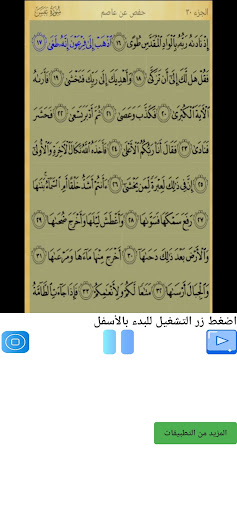 الجزء ٣٠ حفص عن عاصم سُورَةُ عَبَسَ
إِذْ نَادَىٰهُ رَبُّهُۥ بِٱلْوَادِ ٱلْمُقَدَّسِ طُوًى ١٦ ٱذْهَبْ إِلَىٰ فِرْعَوْنَ إِنَّهُۥ طَغَىٰ ١٧
فَقُلْ هَل لَّكَ إِلَىٰٓ أَن تَزَكَّىٰ ١٨ وَأَهْدِيَكَ إِلَىٰ رَبِّكَ فَتَخْشَىٰ ١٩ فَأَرَىٰهُ
ٱلْءَايَةَ ٱلْكُبْرَىٰ ٢٠ فَكَذَّبَ وَعَصَىٰ ٢١ ثُمَّ أَدْبَرَ يَسْعَىٰ ٢٢ فَحَشَرَ
فَنَادَىٰ ٢٣ فَقَالَ أَنَا۠ رَبُّكُمُ ٱلْأَعْلَىٰ ٢٤ فَأَخَذَهُ ٱللَّهُ نَكَالَ ٱلْءَاخِرَةِ وَٱلْأُولَىٰٓ
٢٥ إِنَّ فِى ذَٰلِكَ لَعِبْرَةً لِّمَن يَخْشَىٰٓ ٢٦ ءَأَنتُمْ أَشَدُّ خَلْقًا أَمِ ٱلسَّمَآءُ ۚ بَنَىٰهَا
٢٧ رَفَعَ سَمْكَهَا فَسَوَّىٰهَا ٢٨ وَأَغْطَشَ لَيْلَهَا وَأَخْرَجَ ضُحَىٰهَا ٢٩
وَٱلْأَرْضَ بَعْدَ ذَٰلِكَ دَحَىٰهَآ ٣٠ أَخْرَجَ مِنْهَا مَآءَهَا وَمَرْعَىٰهَا ٣١
وَٱلْجِبَالَ أَرْسَىٰهَا ٣٢ مَتَٰعًا لَّكُمْ وَلِأَنْعَٰمِكُمْ ٣٣ فَإِذَا جَآءَتِ ٱلطَّآمَّةُ
اضغط زر التشغيل للبدء بالأسفل
المزيد من التطبيقات